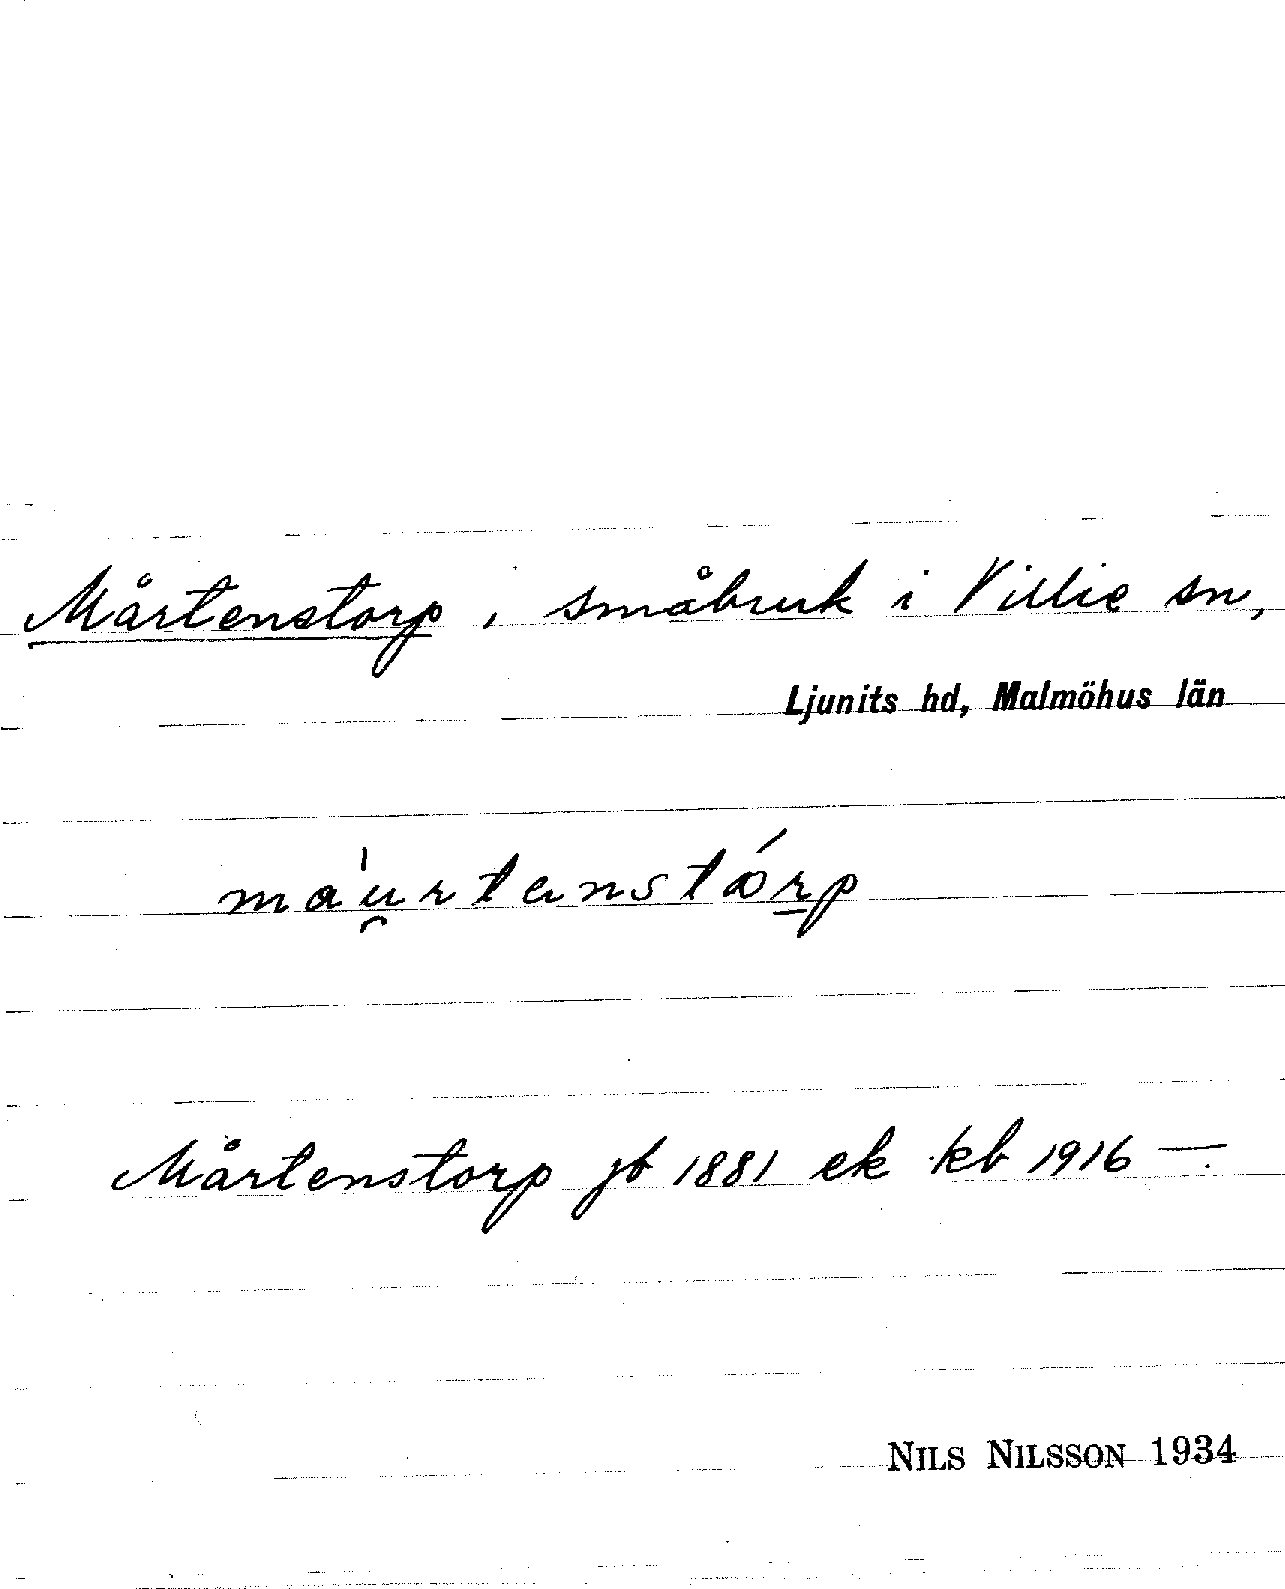 Mårtenstorp, småbruk i Villie sn,
Ljunits hd, Malmöhus län
ma'u̯rtanstó̱rp
Mårtenstorp jb 1881 ek kb 1916 —.
NILS NILSSON 1934